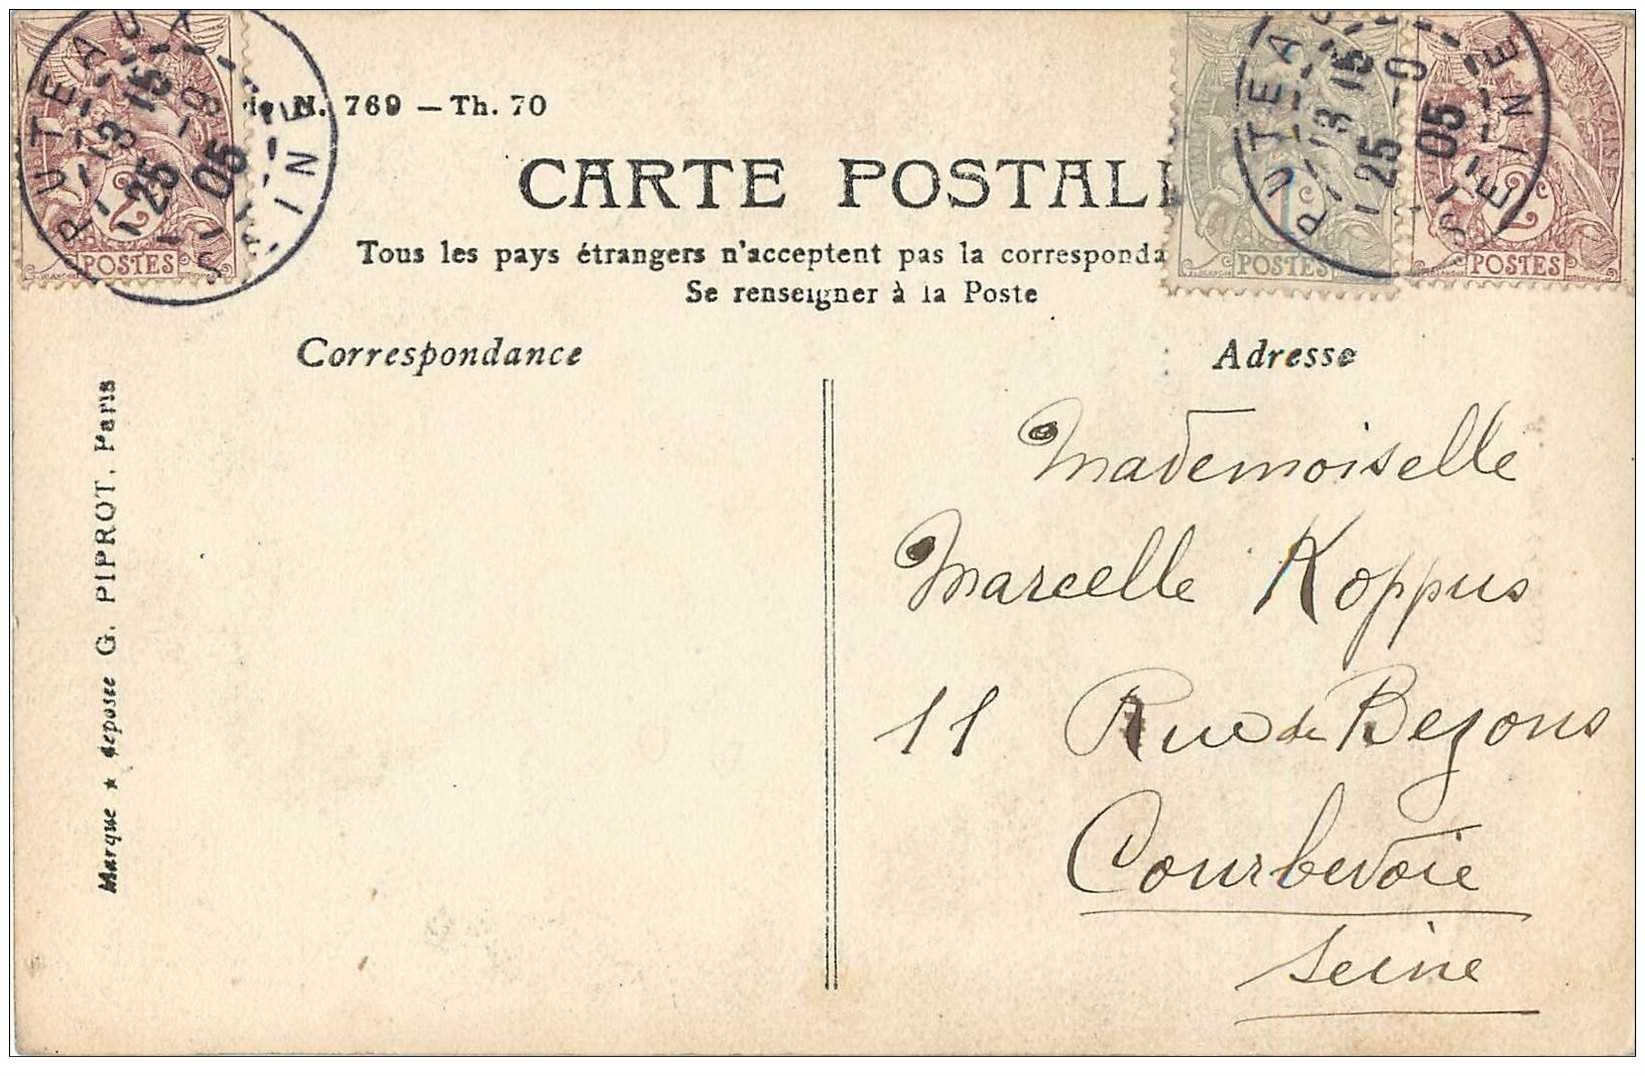 N. 769 — Th. 70
CARTE POSTAL
Tous les pays étrangers n'acceptent pas la corresponda
Se renseigner à la Poste
Correspondance
Adresse
Marque ★ déposée G. PIPROT, Paris
Mademoiselle
Marcelle Koppus
11 Rue de Bezons
Courbevoie
Seine
PUTEAUX
13 15
25 -9
05
SEINE
2c
POSTES
PUTEAU
13 15
25 -9
05
SEINE
1c
POSTES
2c
POSTES